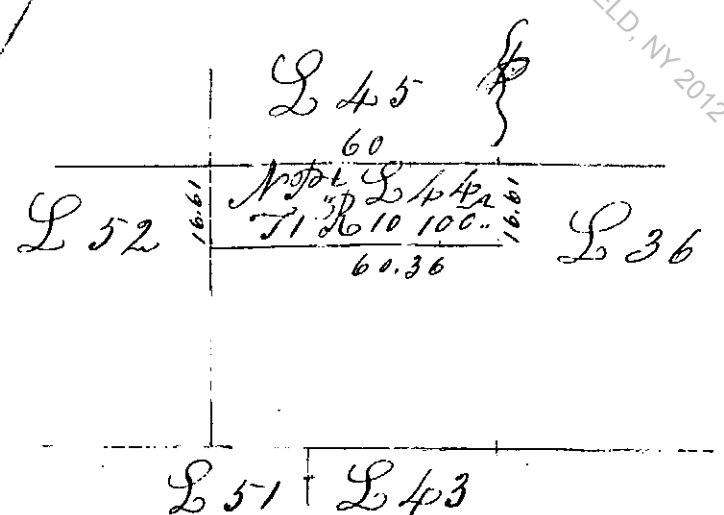 ELD, NY 2012
L 45
60
L 52
16.61
N Pt L 44
T1 R10 100
16.61
L 36
60.36
L 51
L 43